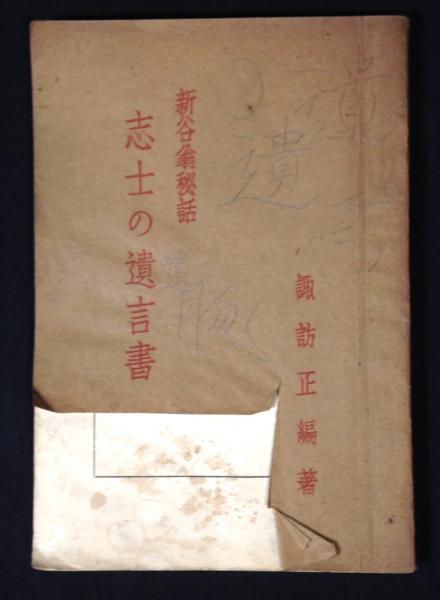 新谷翁秘話
志士の遺言書
諏訪正編著
遺
遺